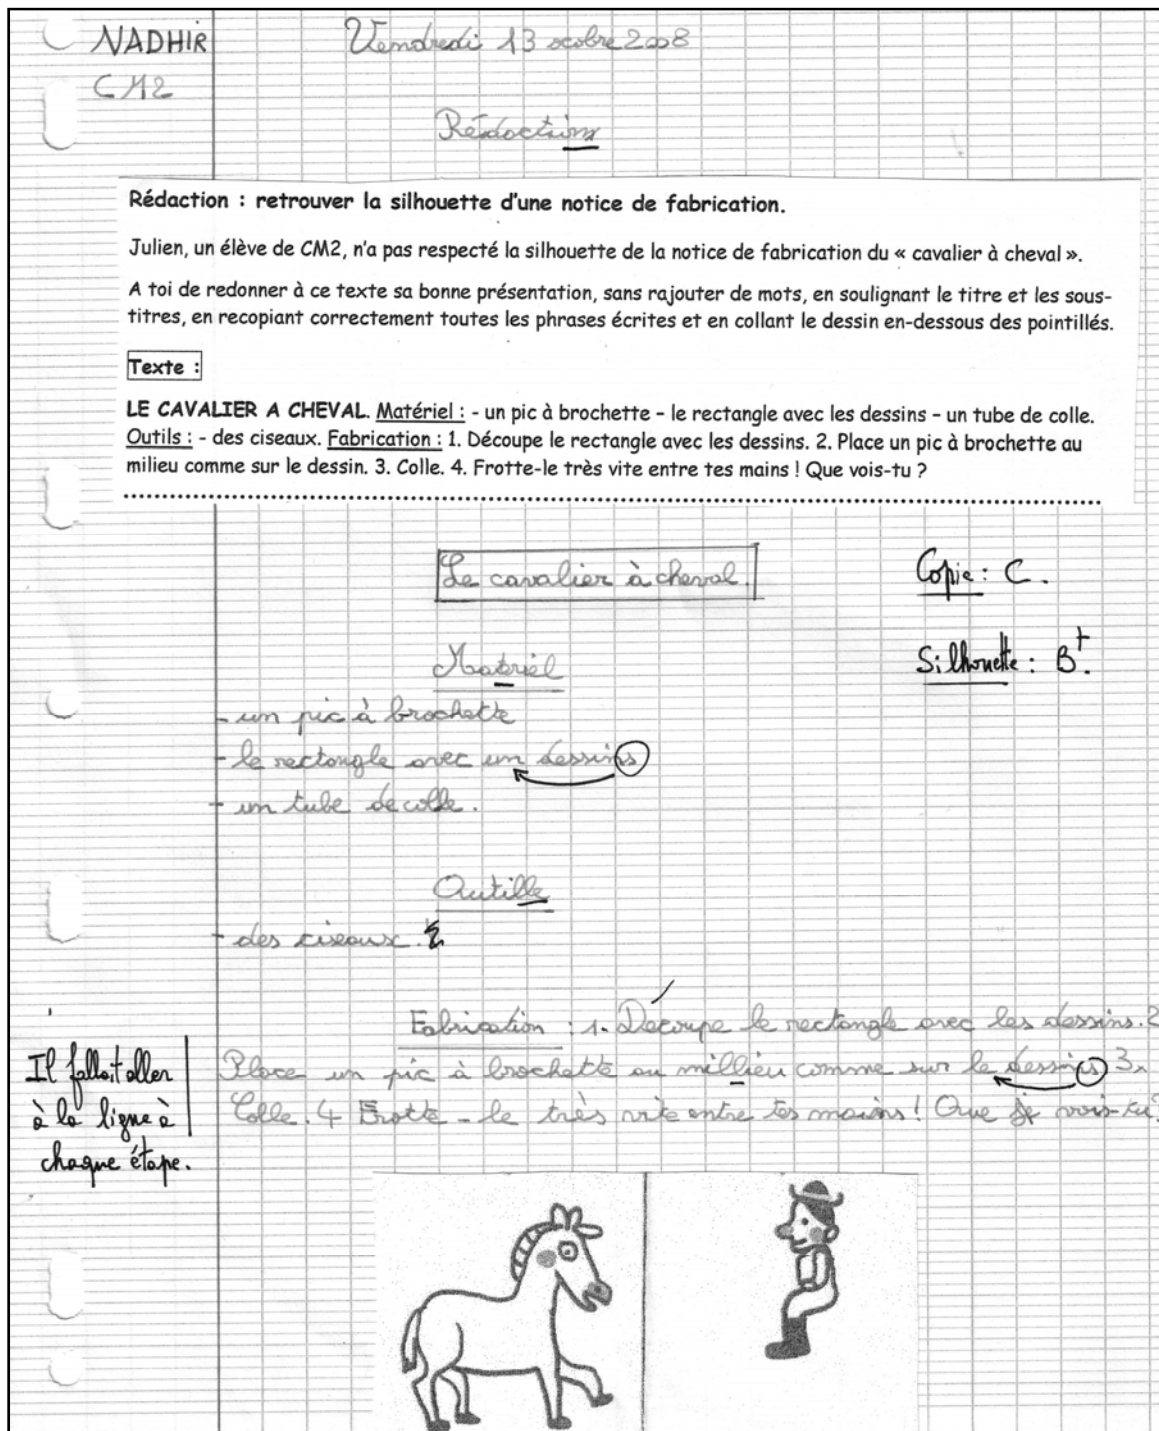 NADHIR
Vendredi 13 ocobre 2008
CM2
Rédaction
Rédaction : retrouver la silhouette d'une notice de fabrication.
Julien, un élève de CM2, n'a pas respecté la silhouette de la notice de fabrication du « cavalier à cheval ».
A toi de redonner à ce texte sa bonne présentation, sans rajouter de mots, en soulignant le titre et les sous-
titres, en recopiant correctement toutes les phrases écrites et en collant le dessin en-dessous des pointillés.
Texte :
LE CAVALIER A CHEVAL. Matériel : - un pic à brochette - le rectangle avec les dessins - un tube de colle.
Outils : - des ciseaux. Fabrication : 1. Découpe le rectangle avec les dessins. 2. Place un pic à brochette au
milieu comme sur le dessin. 3. Colle. 4. Frotte-le très vite entre tes mains ! Que vois-tu ?
Le cavalier à cheval.
Copie : C.
Silhouette : B+.
Matriel
- un pic à brochette
- le rectangle avec un dessins
- un tube de colle.
Outille
- des ciseaux.
Fabrication : 1. Découpe le rectangle avec les dessins. 2
Place un pic à brochette au millieu comme sur le dessins 3.
Colle. 4 Frotte-le très vite entre tes mains ! Que vois-tu ?
Il fallait aller
à la ligne à
chaque étape.